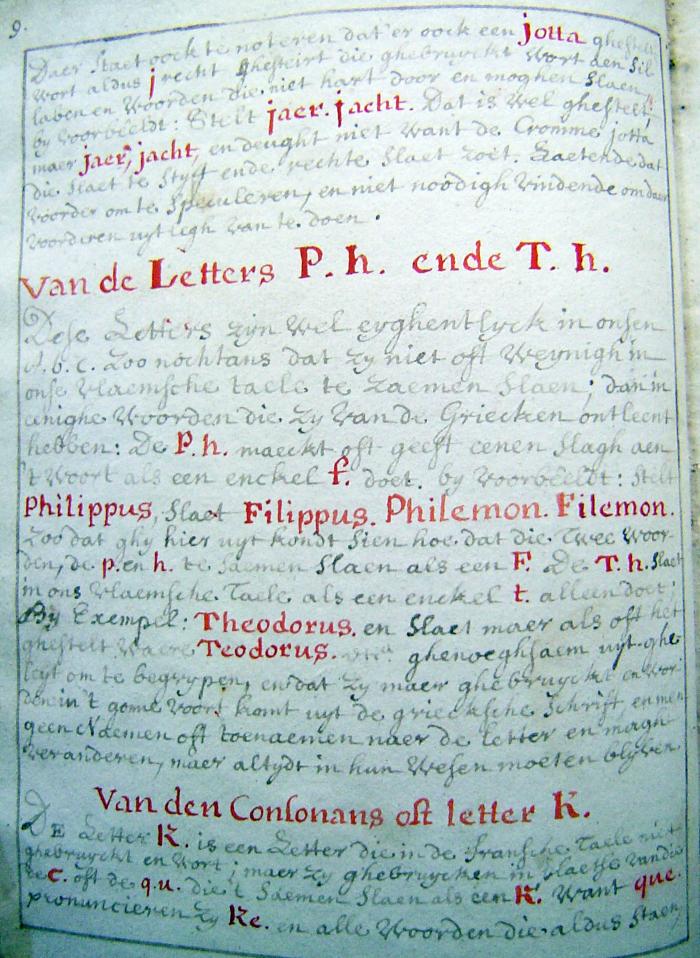 9.
Daer Staet oock te noteren dat er oock een jotta ghestelt
wort aldus j recht ghesteirt die ghebruyckt wort aen Sil
laben en woorden die niet hart door en moghen Slaen,
by voorbeeldt: Stelt jaer. jacht. Dat is wel ghestelt,
maer jaer, jacht, en deught niet want de Cromme jotta
die Slaet te Styf ende rechte Slaet zoet. Laetende dat
voorder om te Speculeren, en niet noodigh vindende om daer
voorderen uytlegh van te doen.
Van de Letters P. h. ende T. h.
Dese Letters zyn wel eyghentlyck in onsen
A. b. c. zoo nochtans dat zy niet oft weynigh in
onse vlaemsche taele te zaemen Slaen; dan in
eenighe woorden die zy van de Griecken ontleent
hebben: De P. h. maeckt oft geeft eenen Slagh aen
't woort als een enckel f. doet. by voorbeeldt: Stelt
Philippus, Slaet Filippus. Philemon. Filemon.
Zoo dat ghy hier uyt kondt Sien hoe dat die Twee woor
den, de p. en h. te Saemen Slaen als een F. De T. h. Slaet
in ons vlaemsche Taele als een enckel t. alleen doet;
By Exempel: Theodorus. en Slaet maer als oft het
ghestelt waere Teodorus. ghenoeghsaem uyt-ghe
leyt om te begrypen, en dat zy maer ghebruyckt en wor
den in't gonne voort komt uyt de griecksche Schrift, en men
geen Naemen oft toenaemen naer de letter en magh
veranderen, maer altydt in hun wesen moeten blyven
Van den Consonans oft letter K.
De Letter K. is een Letter die in de fransche Taele niet
ghebruyckt en wort; maer zy ghebruycken in plaetse van die
de c. oft de q.u. die't Saemen Slaen als een K. want que.
pronuncieren zy Ke. en alle woorden die aldus Staen,